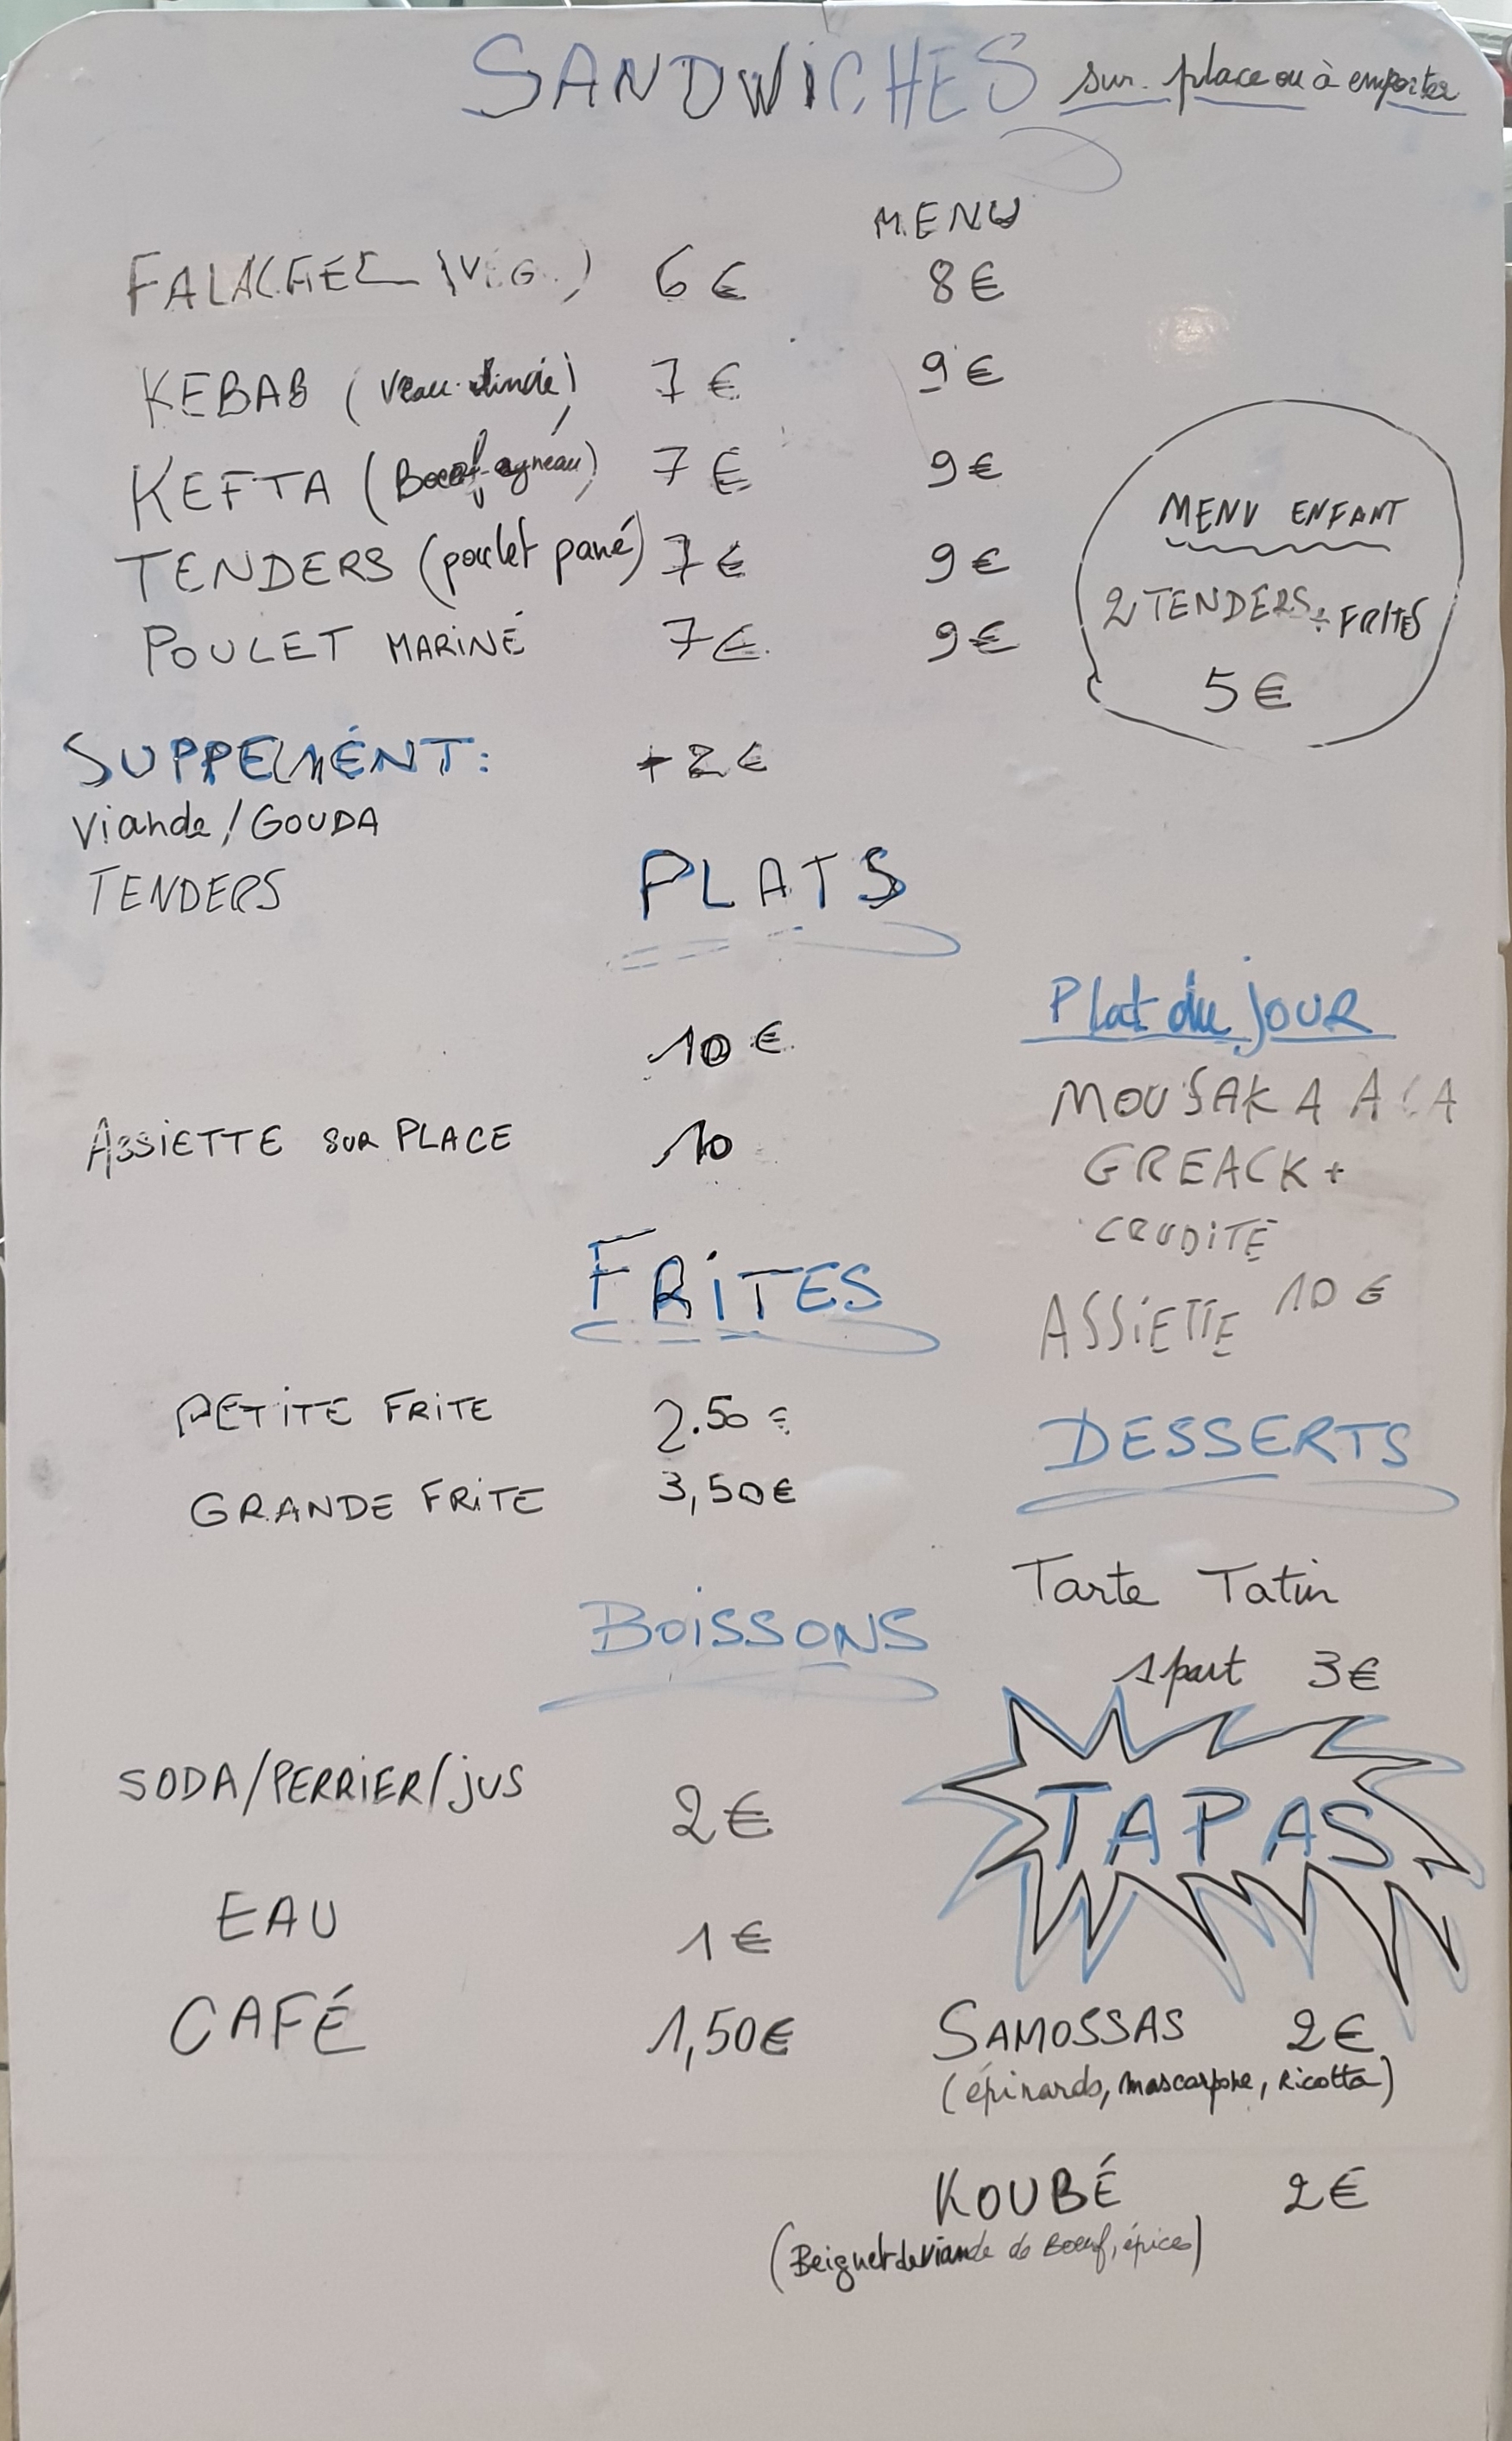 SANDWICHES sur place ou à emporter
MENU
FALAFEL (VG.) 6€ 8€
KEBAB (Veau-dinde) 7€ 9€
KEFTA (Boeuf-agneau) 7€ 9€
TENDERS (poulet pané) 7€ 9€
POULET MARINÉ 7€ 9€
MENU ENFANT
2 TENDERS + FRITES
5€
SUPPEMÉNT: +2€
Viande/GOUDA
TENDERS
PLATS
10€
ASSIETTE SUR PLACE 10
Plat du JOUR
MOUSAKA A LA
GREACK +
CRUDITÉ
ASSIETTE 10€
FRITES
PETITE FRITE 2.50 €
GRANDE FRITE 3,50€
DESSERTS
Tarte Tatin
1 part 3€
BOISSONS
SODA/PERRIER/jUS 2€
EAU 1€
CAFÉ 1,50€
TAPAS
SAMOSSAS 2€
(épinards, mascarpone, Ricotta)
KOUBÉ 2€
(Beignet de viande de Boeuf, épices)